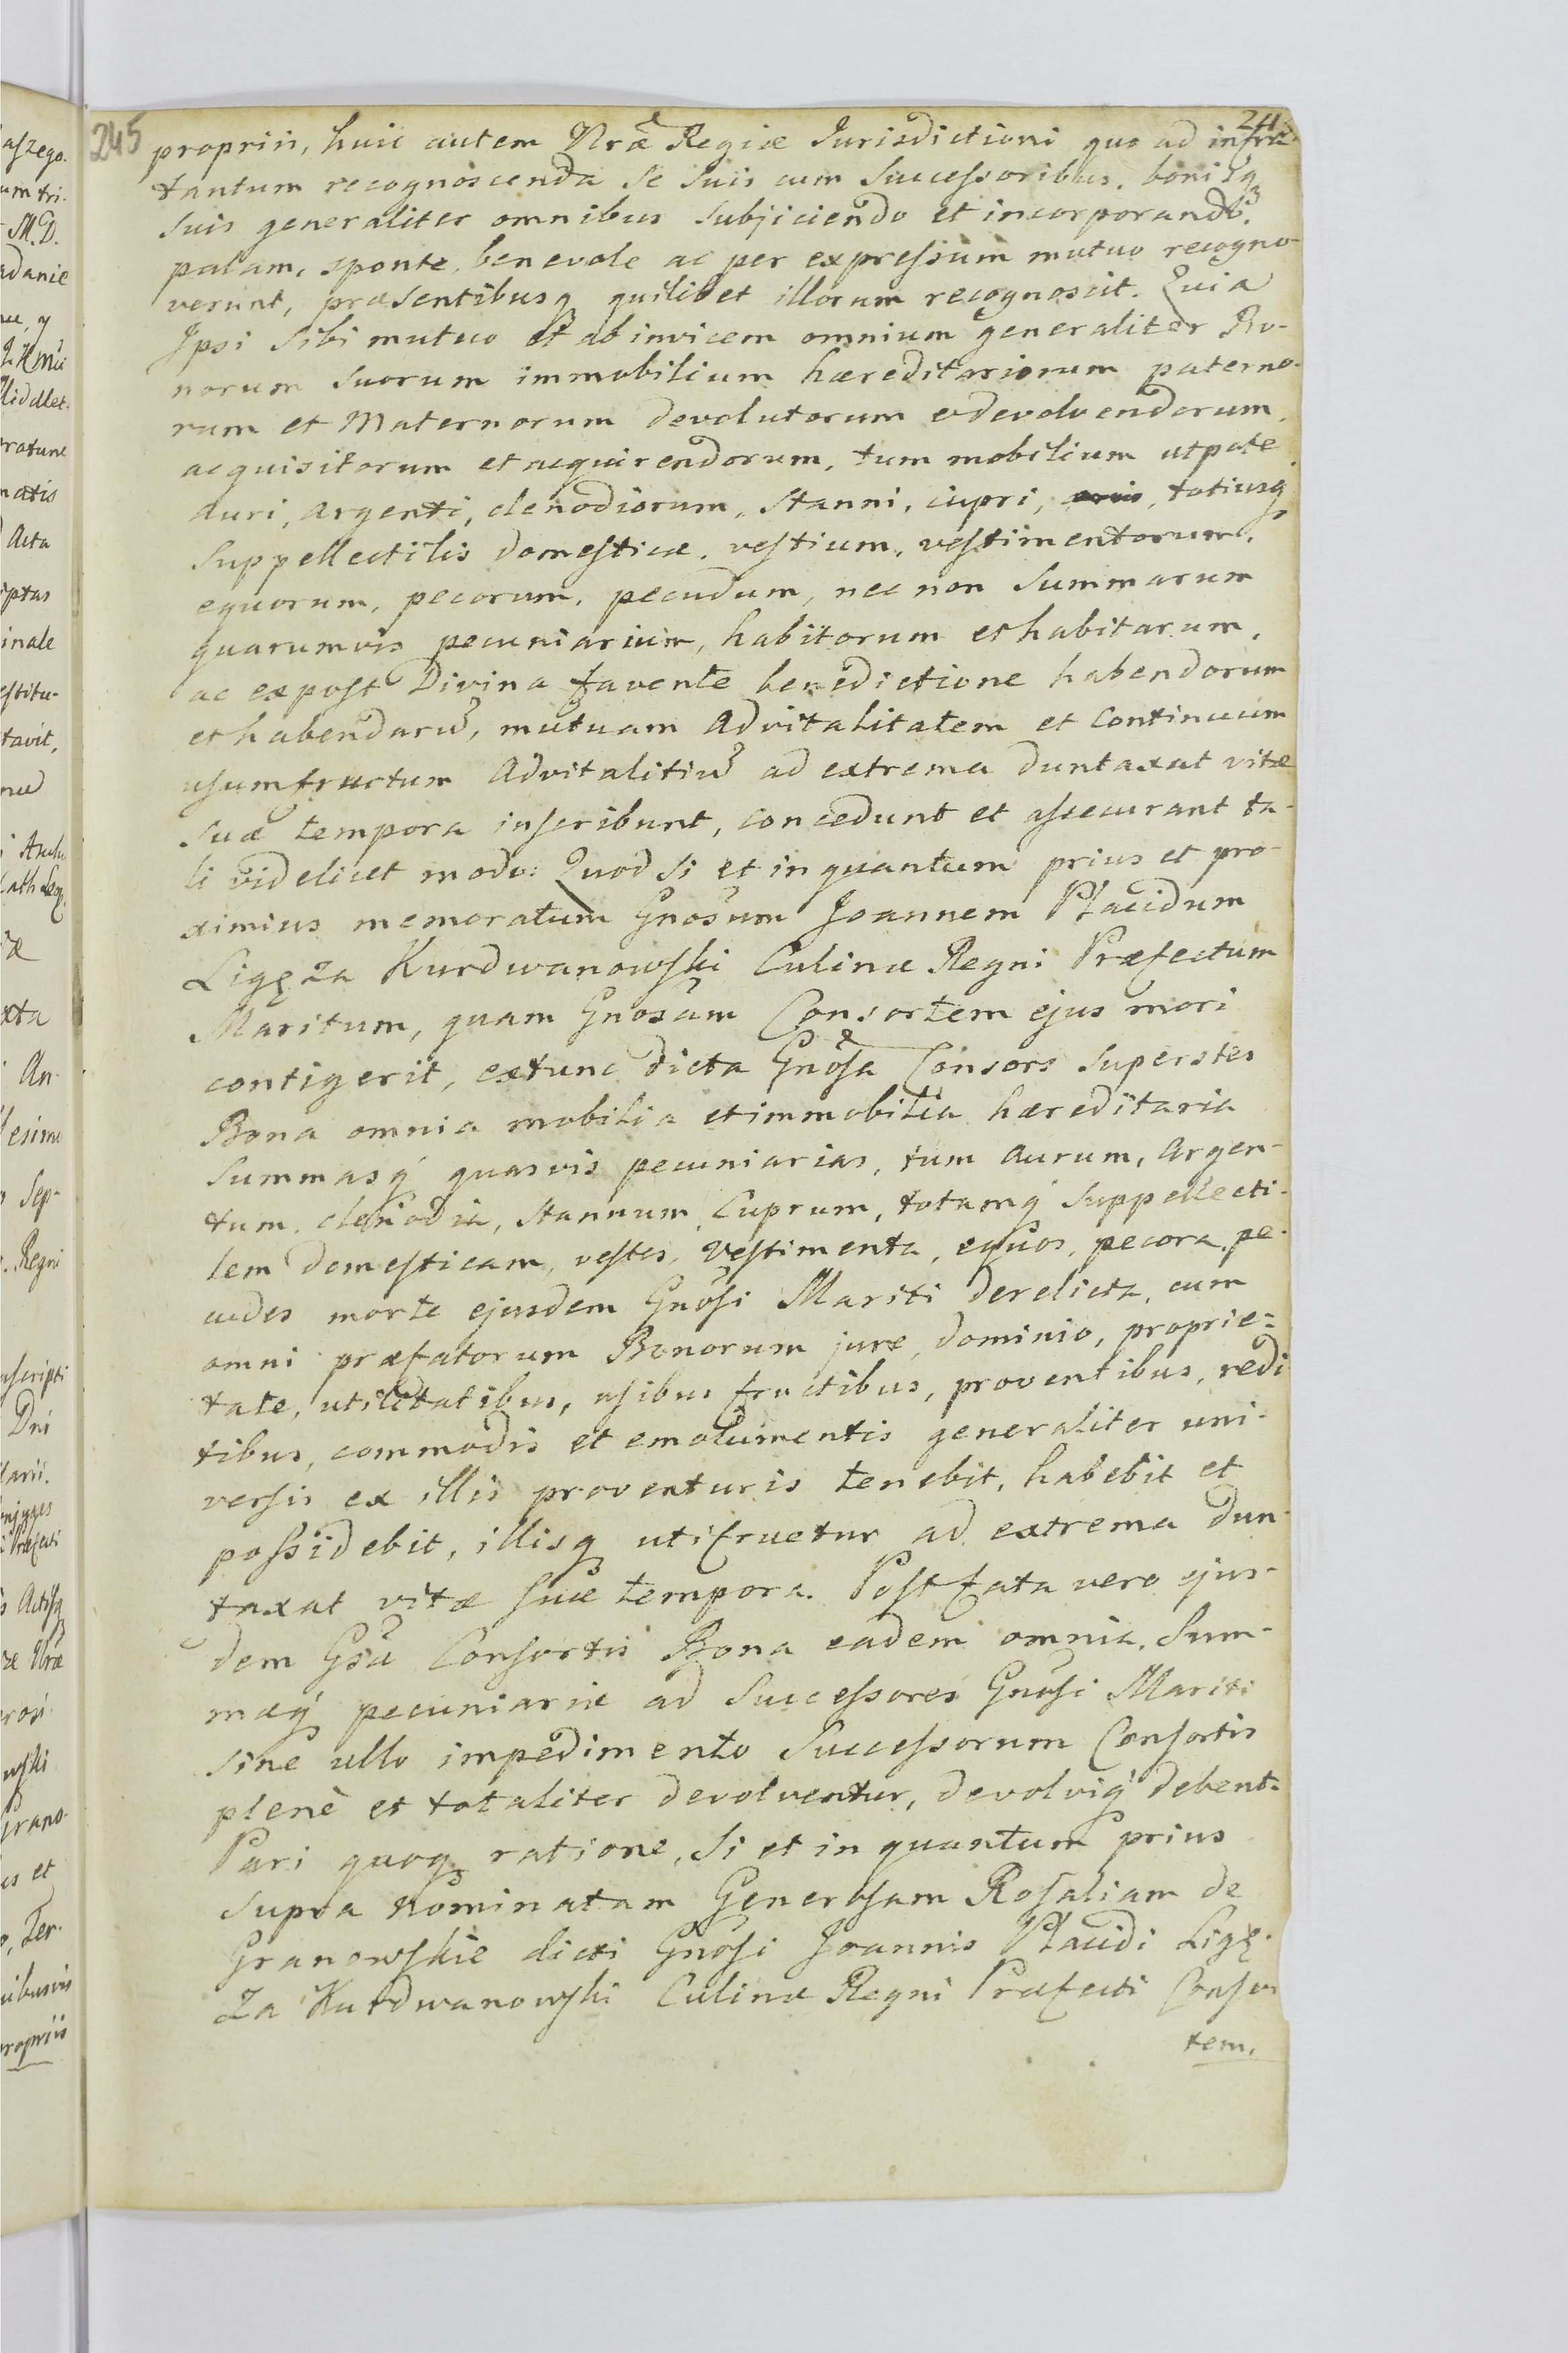 245
propriis, huic autem Nræ Regiæ Jurisdictioni quo ad infra
tantum recognoscenda se suis cum Successoribus, bonisq
suis generaliter omnibus subjiciendo et incorporando,
palam, sponte, benevole ac per expressum mutuo recogno-
verunt, præsentibusq quilibet illorum recognoscit. Quia
Ipsi sibi mutuo et ab invicem omnium generaliter Bo-
norum suorum immobilium hæreditariorum paterno-
rum et Maternorum devolutorum & devolvendorum,
acquisitorum et acquirendorum, tum mobilium utpote
auri, argenti, clenodiorum, Stanni, cupri, totiusq
Suppellectilis domesticæ, vestium, vestimentorum,
equorum, pecorum, pecudum, nec non Summarum
quarumvis pecuniarium, habitorum et habitarum,
ac expost Divina favente benedictione habendorum
et habendarū, mutuam Advitalitatem et Continuum
usumfructum Advitalitiū ad extrema duntaxat vitæ
suæ tempora inscribunt, concedunt et assecurant ta-
li videlicet modo: Quod si et in quantum prius et pro-
ximius memoratum Gnosum Joannem Placidum
Ligęza Kurdwanowski Culinæ Regni Præfectum
Maritum, quam Gnosam Consortem ejus mori
contigerit, extunc dicta Gnosa Consors Superstes
Bona omnia mobilia et immobilia hæreditaria
Summasq quasvis pecuniarias, tum Aurum, Argen-
tum, clenodia, Stannum, Cuprum, totamq Suppellecti-
lem domesticam, vestes, Vestimenta, equos, pecora, pe-
cudes morte ejusdem Gnosi Mariti derelicta, cum
omni præfatorum Bonorum jure, dominio, proprie=
tate, utilitatibus, usibus fructibus, proventibus, redi
tibus, commodis et emolumentis generaliter uni-
versis ex illis proventuris tenebit, habebit et
possidebit, illisq utifruetur ad extrema dun-
taxat vitæ suæ tempora. Post fata vero ejus-
dem Gsæ Consortis Bona eadem omnia, Sum-
mæq pecuniariæ ad Successores Gnosi Mariti
sine ullo impedimento Successorum Consortis
plenè et totaliter devolventur, devolviq debent.
Pari quoq ratione, si et in quantum prius
supra Nominatam Generosam Rosaliam de
Granowskie dicti Gnosi Joannis Placidi Ligę-
za Kurdwanowski Culinæ Regni Præfecti Consor
tem,